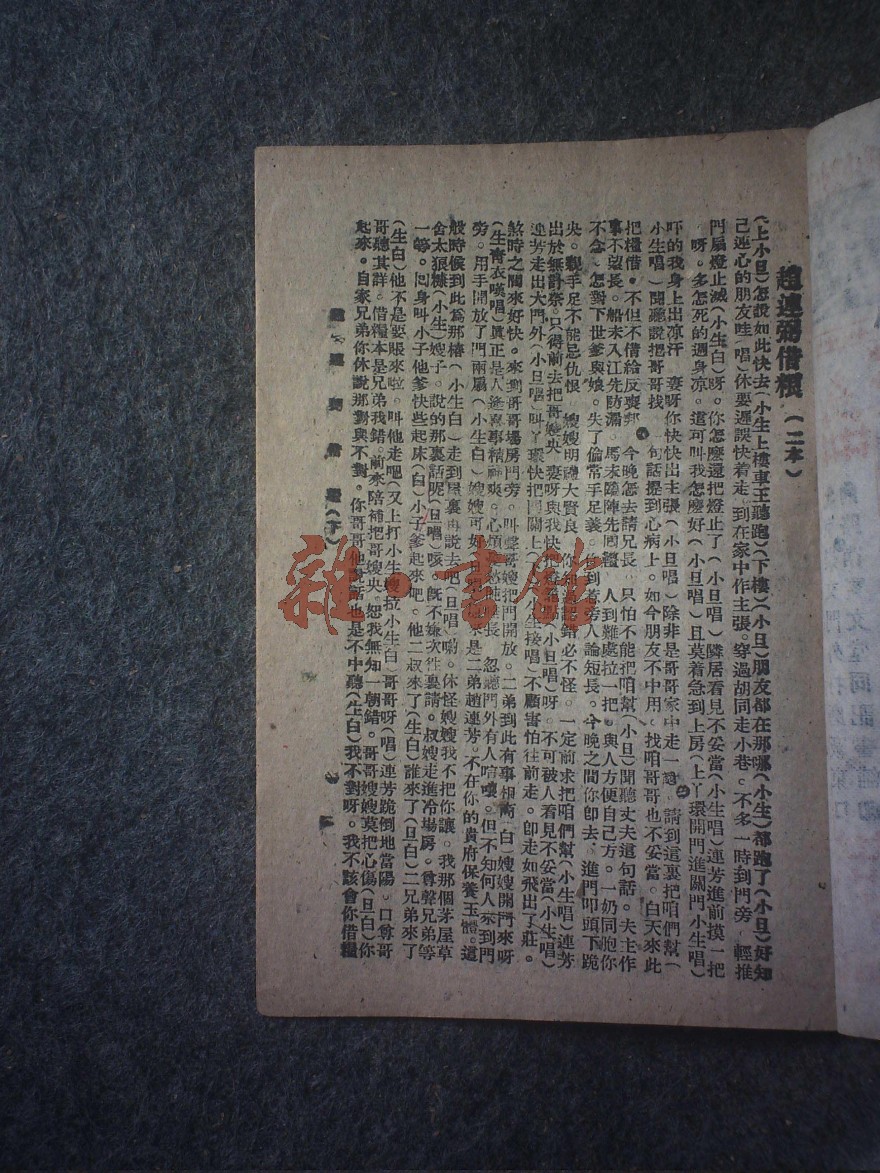 趙連弼借糧（二本）
（上小旦）怎說如此快去（小生上樓車王聽跑）（下樓）（小旦）朋友都在那哪（小生）都跑了（小旦）好知
己連心的朋友哇（唱）休要遲誤快着走、到在家中作主張。穿過胡同走小巷。不多一時到門旁、輕推
門扇燈止滅（小生白）呀。你怎麼還把燈止了（小旦唱）隣居看見不妥當（小生唱）連芳進前摸一把
呀。多怎死的週身凉。這可叫我怎麼好（小旦唱）且莫着急到上房（上丫環開門進關門小生唱）
吓的我身上出凉汗　妻呀你快快出主張（小旦唱）除非是哥哥家中走一　請到這裏把咱們幫（
小生唱）聞聽說把哥哥找　一句話提到心病上。如今朋友不中用。找咱哥哥也不妥當。白天來此
把糧借。不但不借給反　　今晚怎去請兄長　只怕不能把咱幫（小旦）聞聽丈夫這句話。夫主作
事不望長。船未入江先防漏。馬未臨陣先　　人到難處拉一把。與人方便自己方。一奶同胞你
不念、怎對下世爹與娘。失了倫常手足義。　到着旁人論短長。今晚之間你卽去、進門叩頭下跪
央。親手足不能忌仇恨　嫂嫂明禮大賢良、你　　錯必不怪。一定前求把咱們幫（小生唱）連芳
出於無計奈。只得前去把哥嫂央　妻呀與我快把　　（小旦唱）呀。不可被人看見不妥當（小生唱）
連芳走出大門外（小旦唱）叫丫環快把門關上（　小生接唱）不顧害怕往前走。卽走如飛出了莊。
煞時之間來好快。來到哥哥場房門旁。叫聲哥嫂把門開放。二弟到此有事相商（白）嫂嫂開門來呀
（生青衣嘆唱）眞正是人逢喜事精神爽。心煩　愁　　長　忽聽門外有人喧嚷。但不知何人來到門
旁。用手開放了門兩扇（小生白）嫂嫂可好（旦唱）　來是二弟趙連芳。不在你的貴府保養玉體。這
般時候到此爲那樁（小生白）走到屋裏再說去吧（旦唱）喲。休怪嫂嫂我不把你讓。我那個茅屋草
舍太狠　（小生）嫂子。說的那裏話呢（旦唱）咳。旣不嫌次往裏請。叔嫂走進冷場房。尊聲兄弟等
一等。回身叫小子他爹快些起床（白）小子爹起來吧。他二叔來了（生白）誰來了（旦白）二兄弟來了
（生白）他不是要賬來啦。叫他走吧（又上打小生　拉小生白）哥哥呀（唱）連芳跪倒地當陽。口尊哥
哥聽其詳。借糧本是兄弟我錯。前來陪補把哥嫂央。恕我無知一朝錯。哥哥嫂嫂莫把心傷（旦白）你
起來。自家兄弟你休說那對與不對。你哥哥他說話也是不中聽（生白）我不對呀。我不該會你借糧
趙連　借　（下）
雜·書館